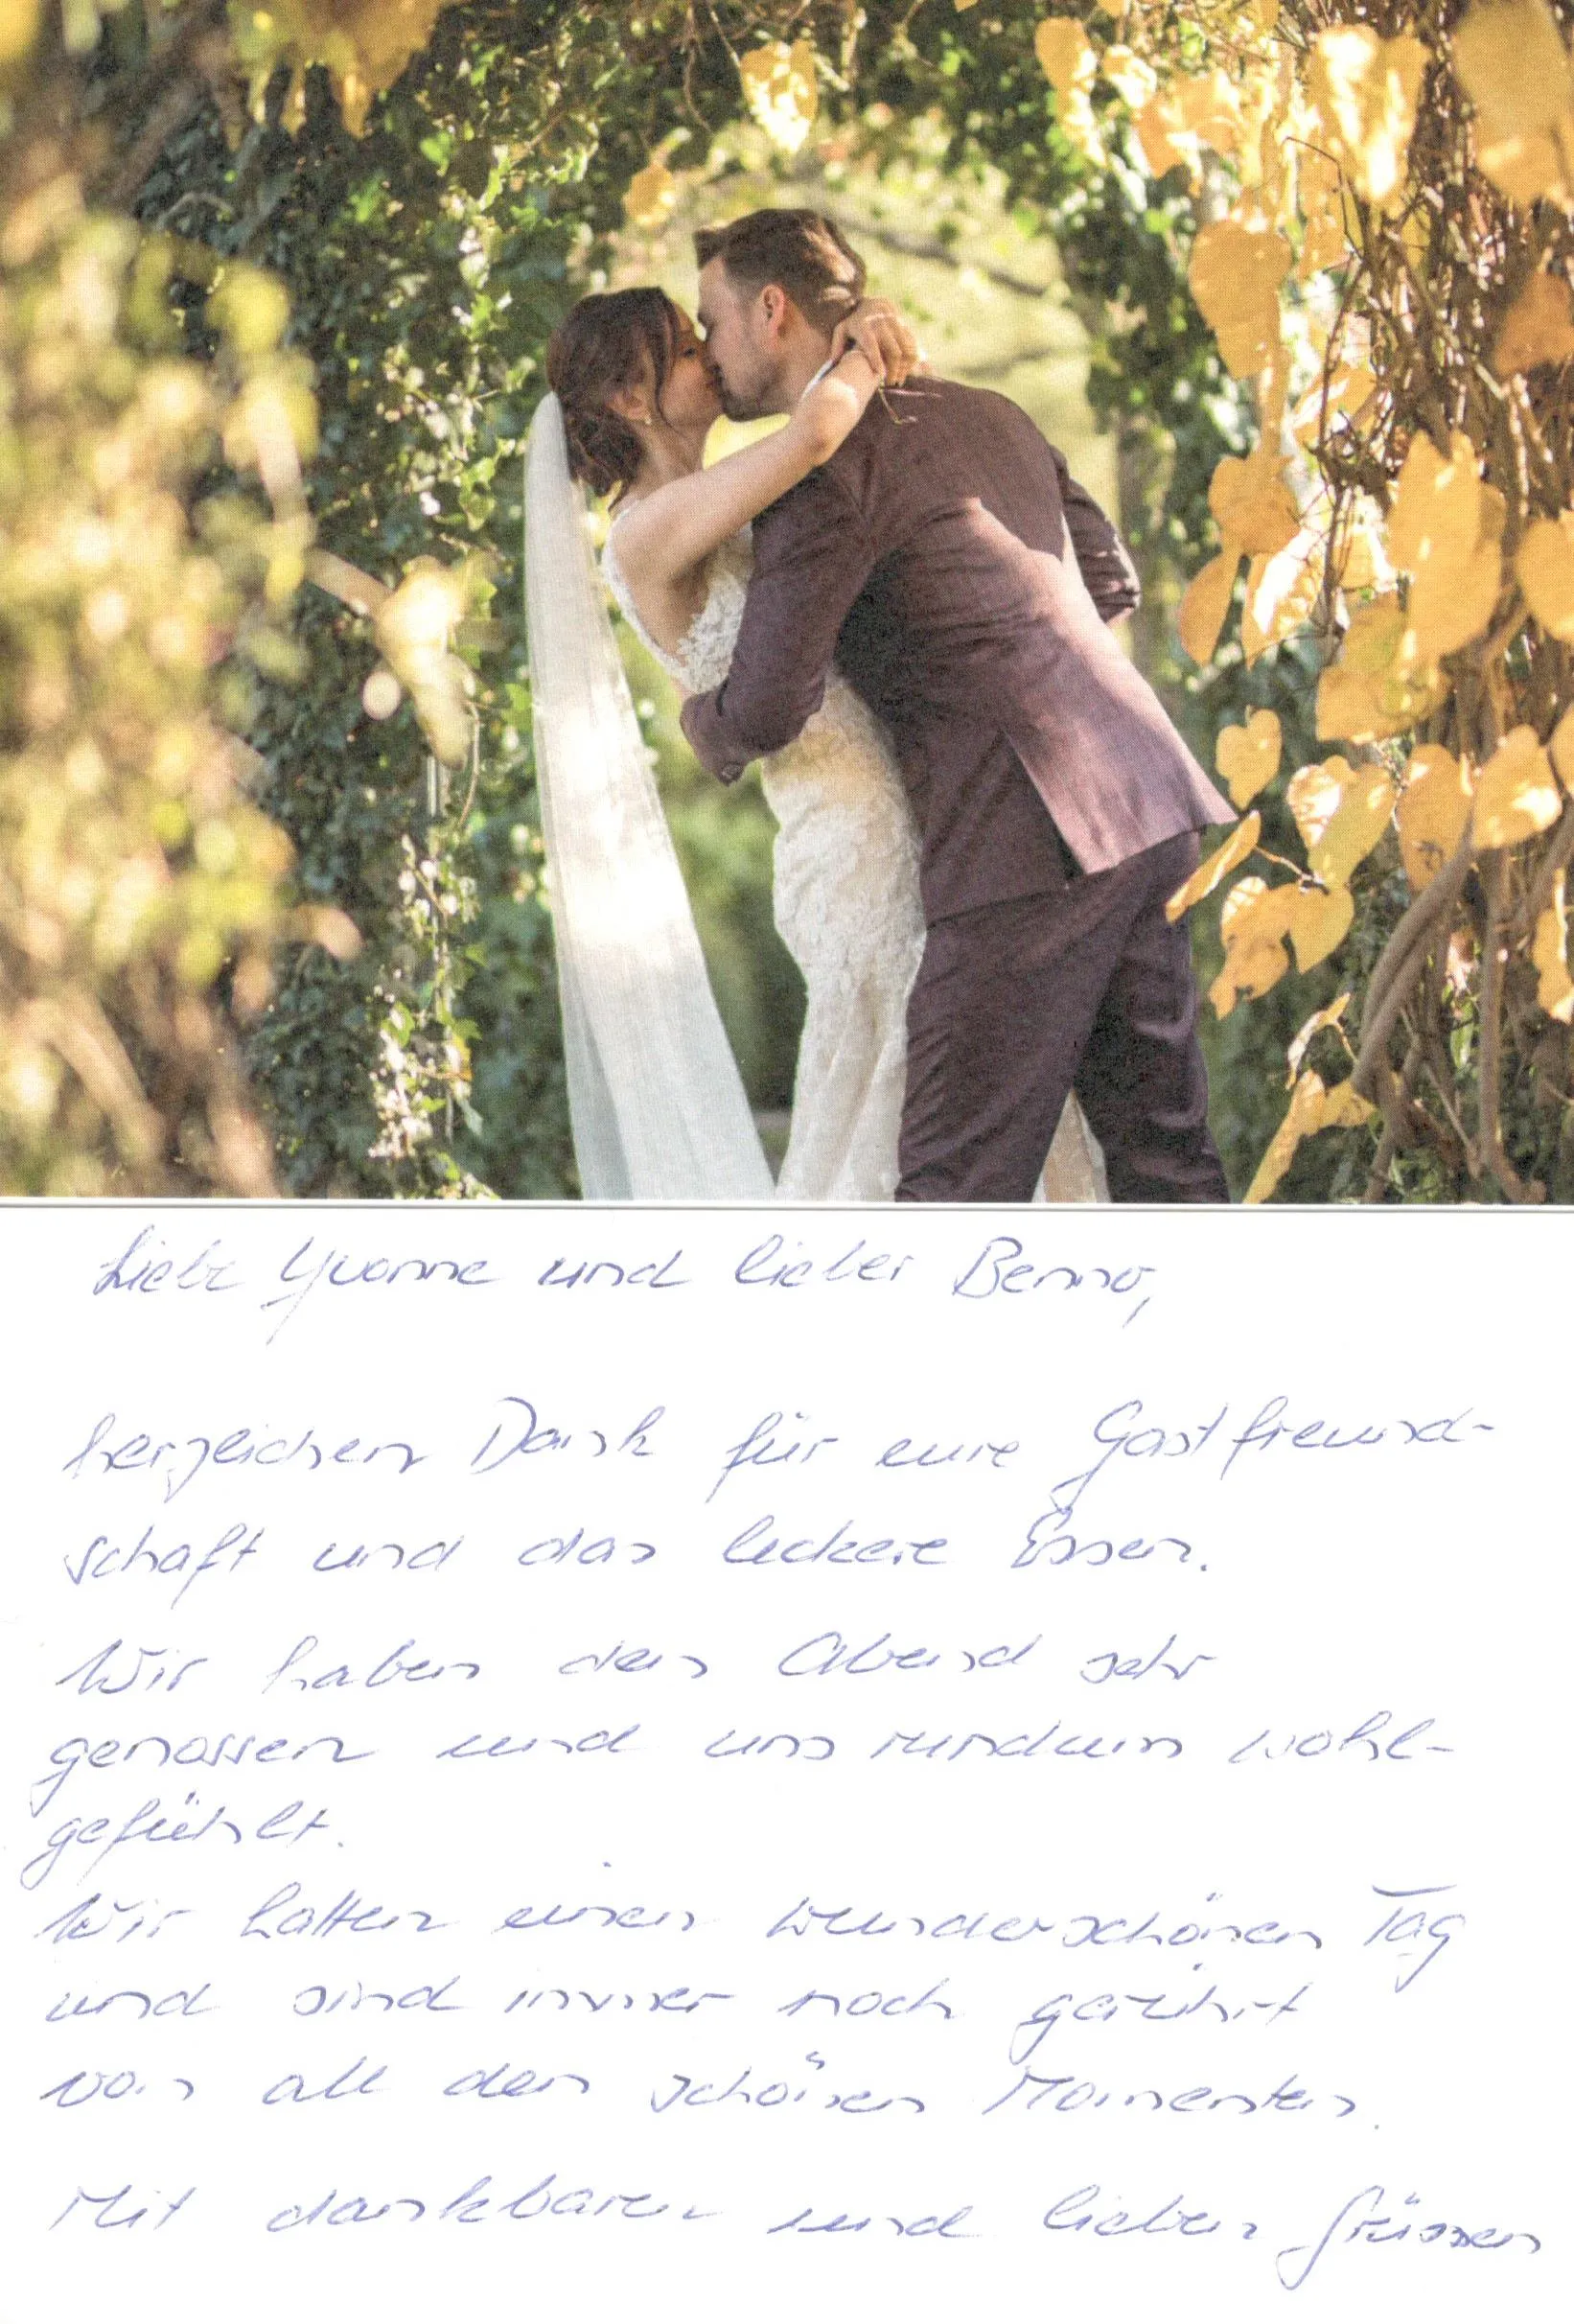 Liebe Yvonne und lieber Benno,
herzlichen Dank für eure Gastfreund-
schaft und das leckere Essen.
Wir haben den Abend sehr
genossen und uns rundum wohl-
gefühlt.
Wir hatten einen wunderschönen Tag
und sind immer noch gerührt
von all den schönen Momenten.
Mit dankbaren und lieben Grüssen